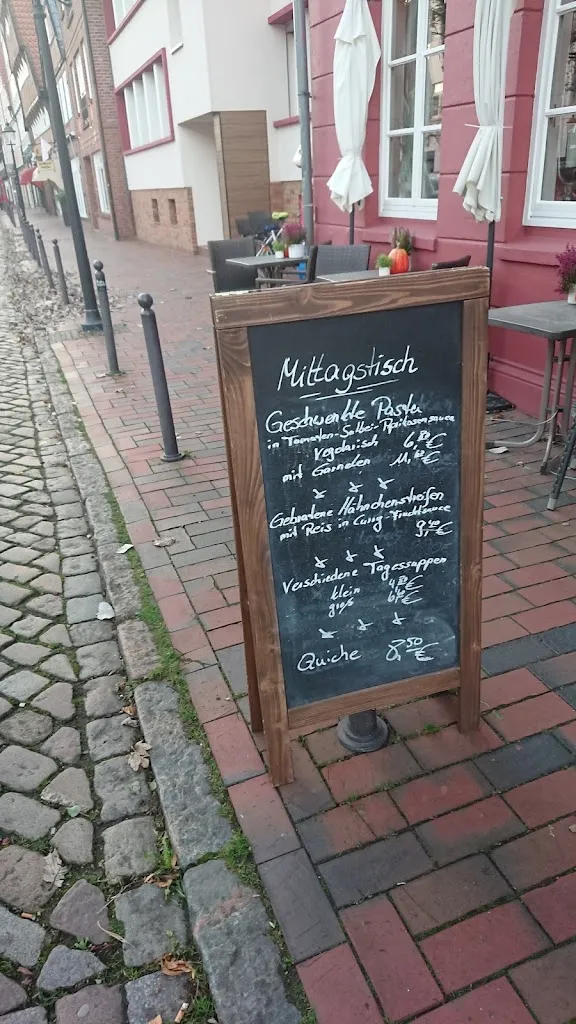 Mittagstisch
Geschwenkte Pasta
in Tomaten-Salbei-
Vegetarisch 6,80 €
mit Garnelen 11,60 €
Gebratene Hähnchenstreifen
mit Reis in Curry-Fruchtsauce
9,40 €
Verschiedene Tagessuppen
klein 4,80 €
groß €
Quiche 8,50 €